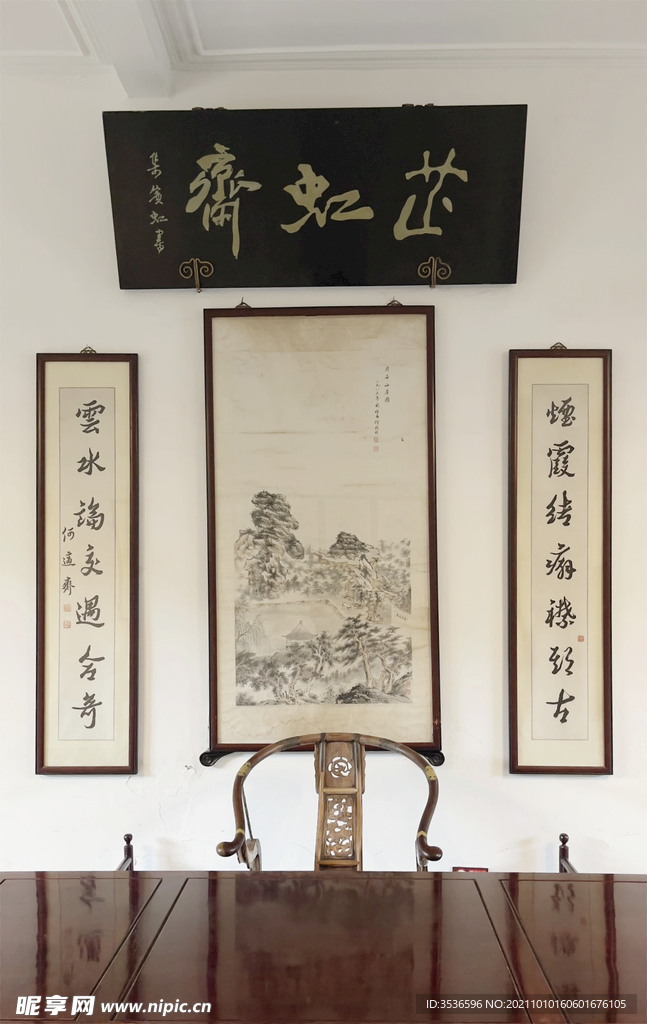 芷虹齋
集賓虹書
煙霞結癖襟頭古
雲水論交遇合奇
何適齋
昵享网 www.nipic.cn
ID:3536596 NO:20211010160601676105